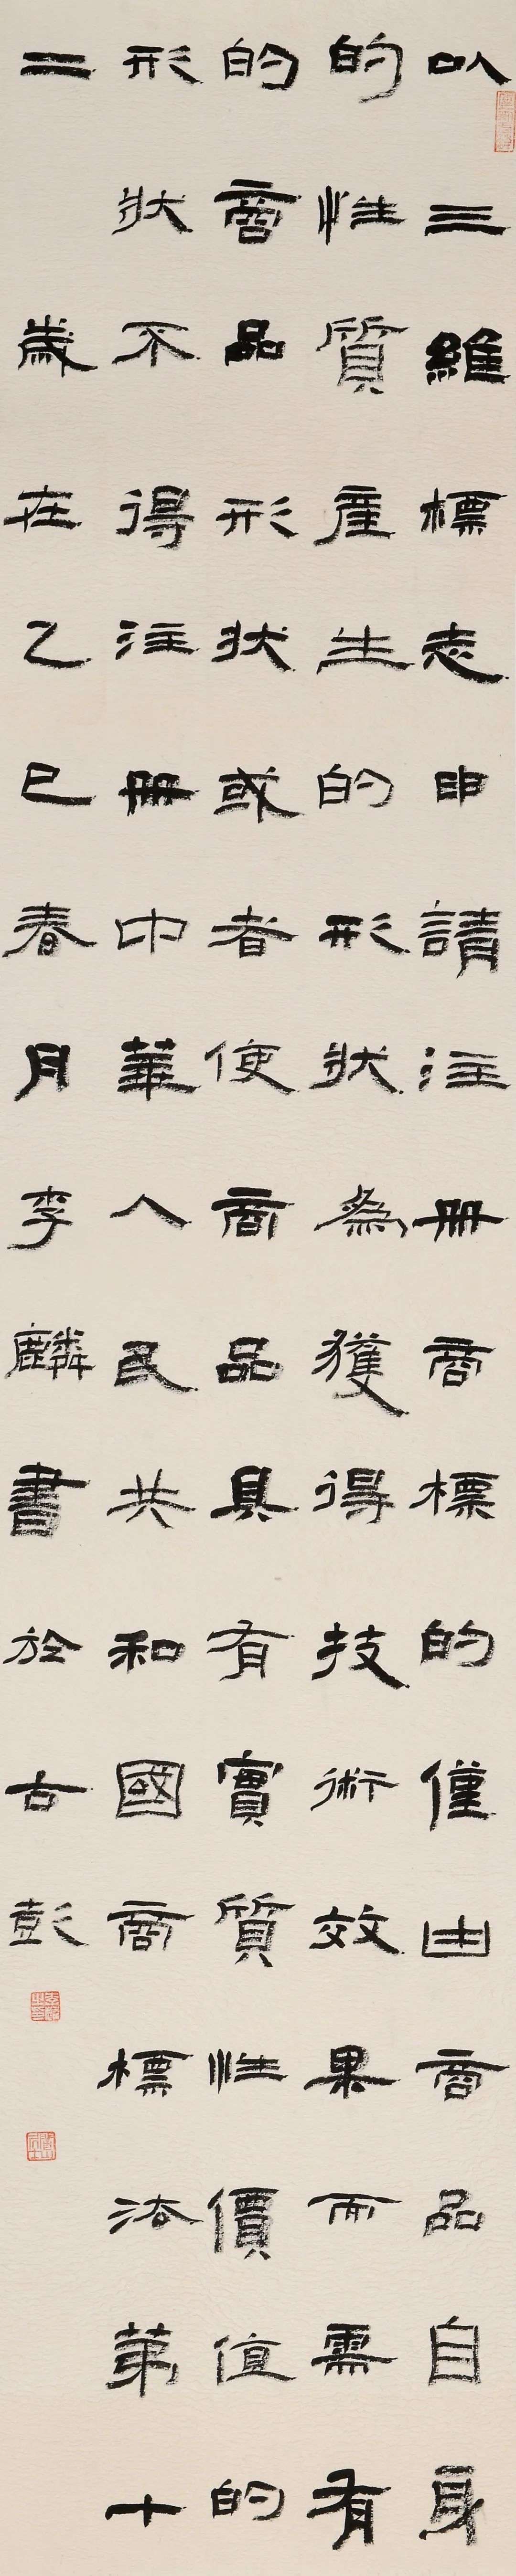 以三維標志申請注冊商標的僅由商品自身
的性質產生的形狀為獲得技術效果而需有
的商品形狀或者使商品具有實質性價值的
形狀不得注冊中華人民共和國商標法第十
二
歲在乙巳春月李麟書於古彭